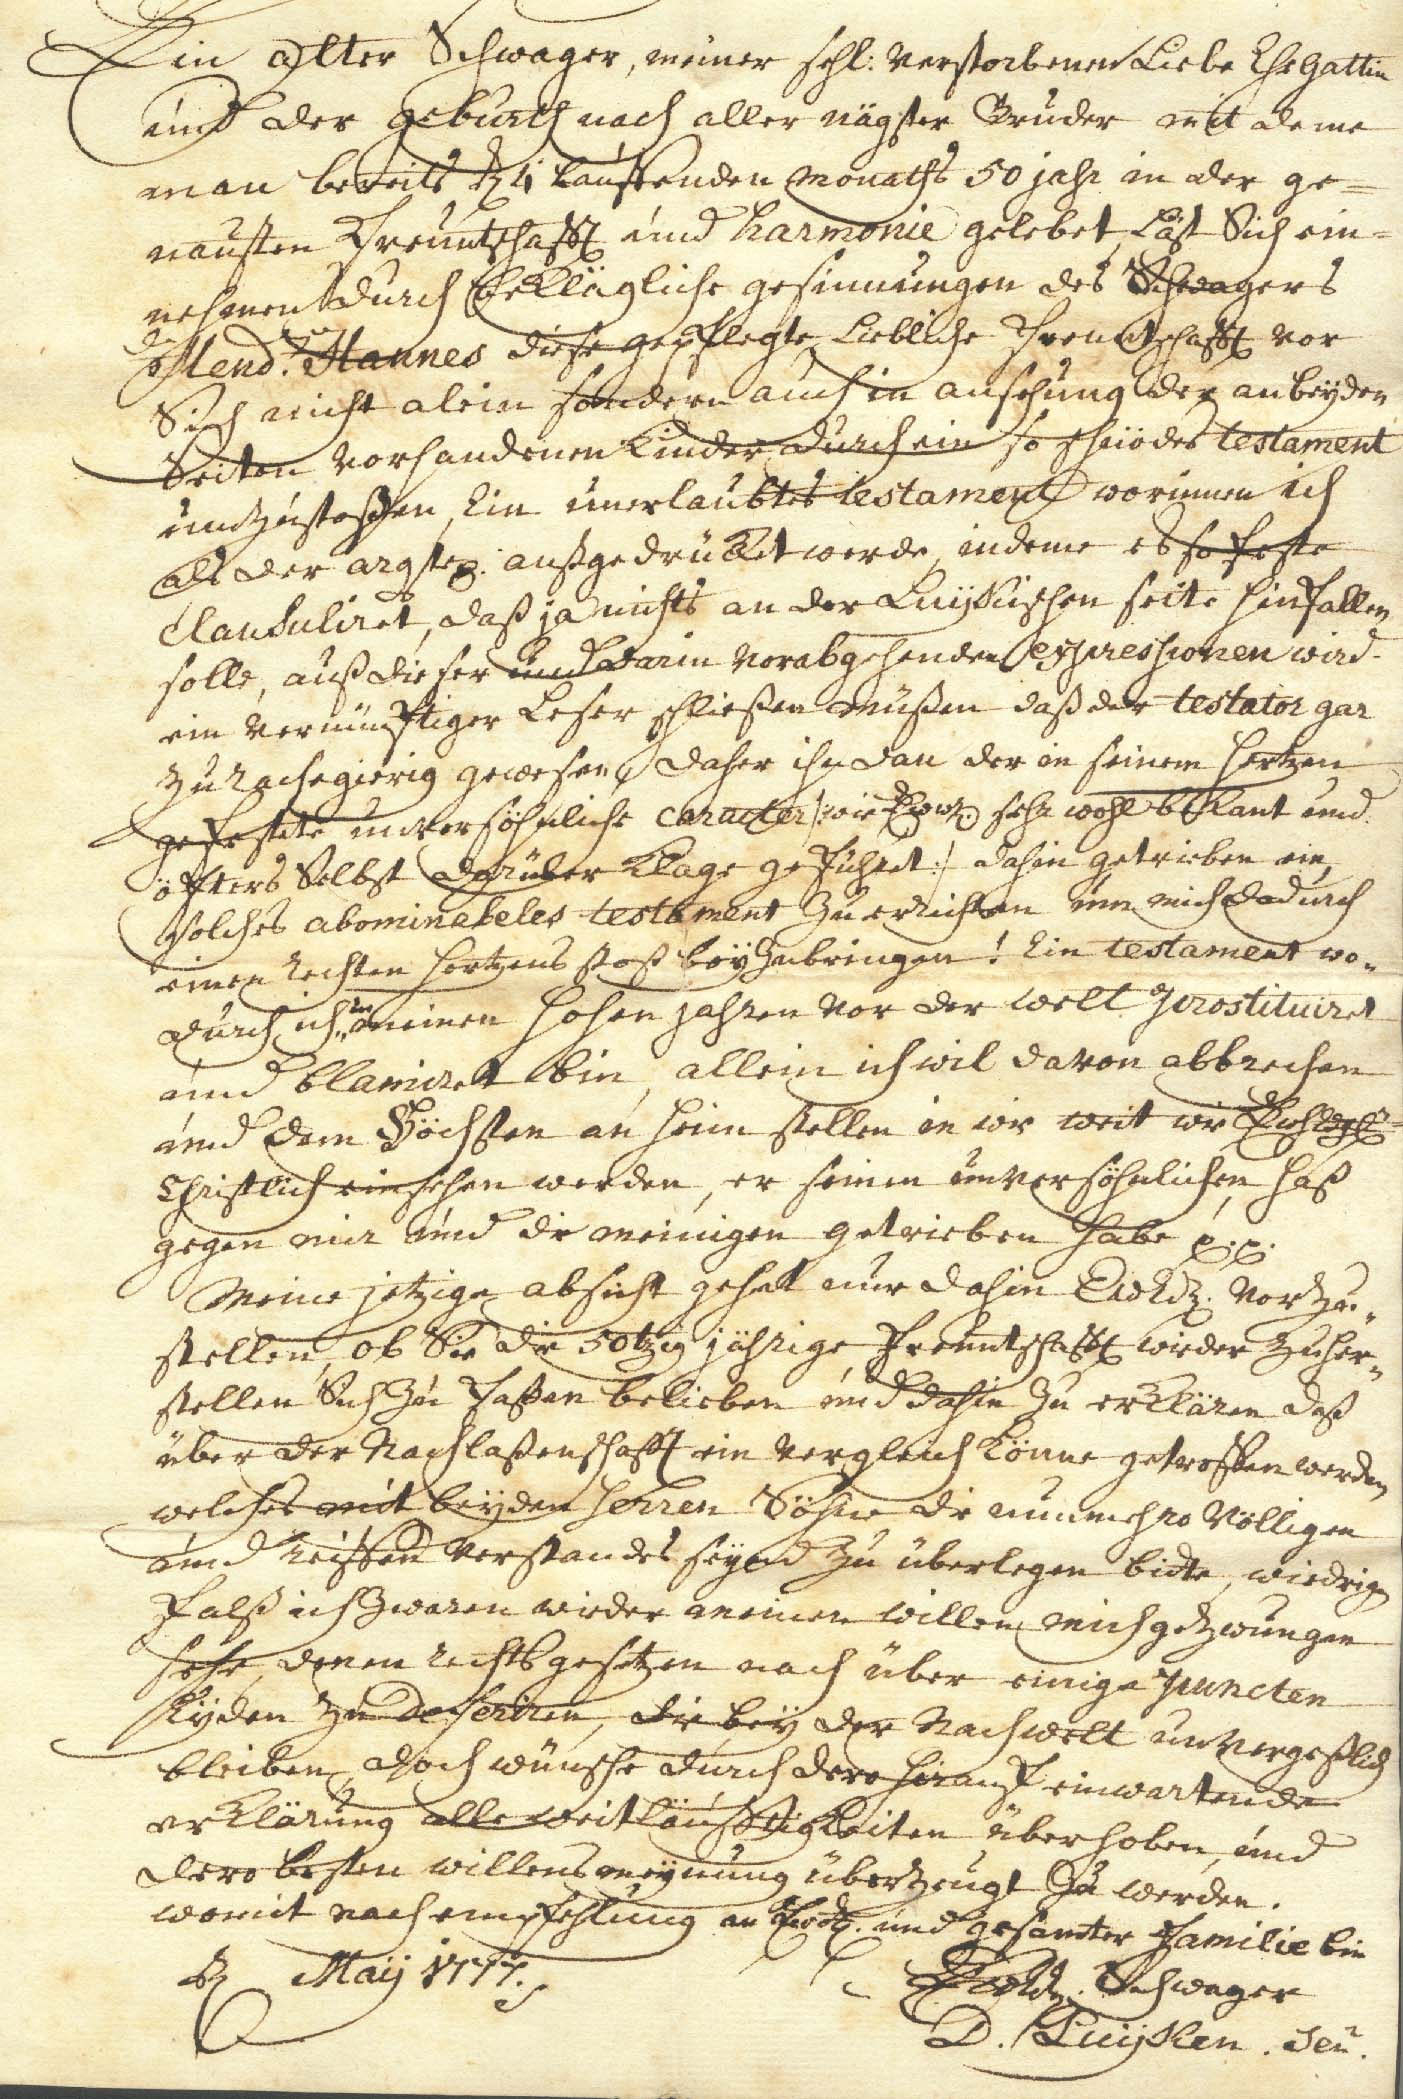 Ein alter Schwager, meiner sehl: verstorbenen Liebe Ehegattin
und der geburth nach aller nägster Bruder mit deme
man bereits 4 lauffenden Monaths 50 jahr in der ge=
nausten Freuntschafft und harmonie gelebet, läst Sich ein=
nehmen durch klägliche gesinnungen des Schwagers
Hannes diese gepflegte Liebliche Freuntschafft vor
Sich nicht alein sondern auch in ansehung der anbeyden
Seiten vorhandenen Kinder durch ein so schnödes testament
umbzustoßen, Ein unerlaubtes testament worinnen ich
als der argste außgedrücket werde, indeme es so feste
Clausuliret, daß ja nichts an der Luyskischen seite hinfallen
solle, auß dieser und darin vorabgehenden expressionen wird
ein vernünfftiger Leser schließen müßen daß der testator gar
zu rachegierig gewesen, daher ihn dan der in seinem Hertzen
gefestete unversöhnliche caracter /: wie sehr wohl bekant und
öffters Selbst darüber Klage geführet :/ dahin getrieben ein
solches abominabeles testament zu errichten um mich dadurch
einen rechten Hertzens stoß beyzubringen! Ein testament wo=
durch ich in meinen hohen jahren vor der welt prostituiret
und blamiret bin, allein ich wil davon abbrechen
und dem Höchsten an heim stellen in wie weit wie
Christlich einsehen werden, er seinen unversöhnlichen haß
gegen mir und die meinigen getrieben habe p.p.
Meine jetzige absicht gehet nur dahin vorzu=
stellen, ob Sie die 50tzig jährige freuntschafft wieder zuher=
stellen Sich zu laßen belieben und dahin zu erklären daß
über der Nachlaßenschafft ein vergleich könne getroffen werden
welches mit beyden Herren Söhne die nunmehro völligen
und reiffen verstandes seyend zu überlegen bitte, wiedrigen
falß ich zwaren wieder meinen willen mich gezwungen
sehe, denen rechts gesetzen nach über einige puncten
Eyden zu deferiren, die bey der Nachwelt unvergeßlich
bleiben, doch wünsche durch dero hierauf einwartende
erklärung alle weitläufftigkeiten überhoben, und
dero besten willensmeynung überzeugt zu werden.
womit nach empfehlung an und gesamter Familie bin
Maij 1777.
Schwager
D. Luijken. Sen.